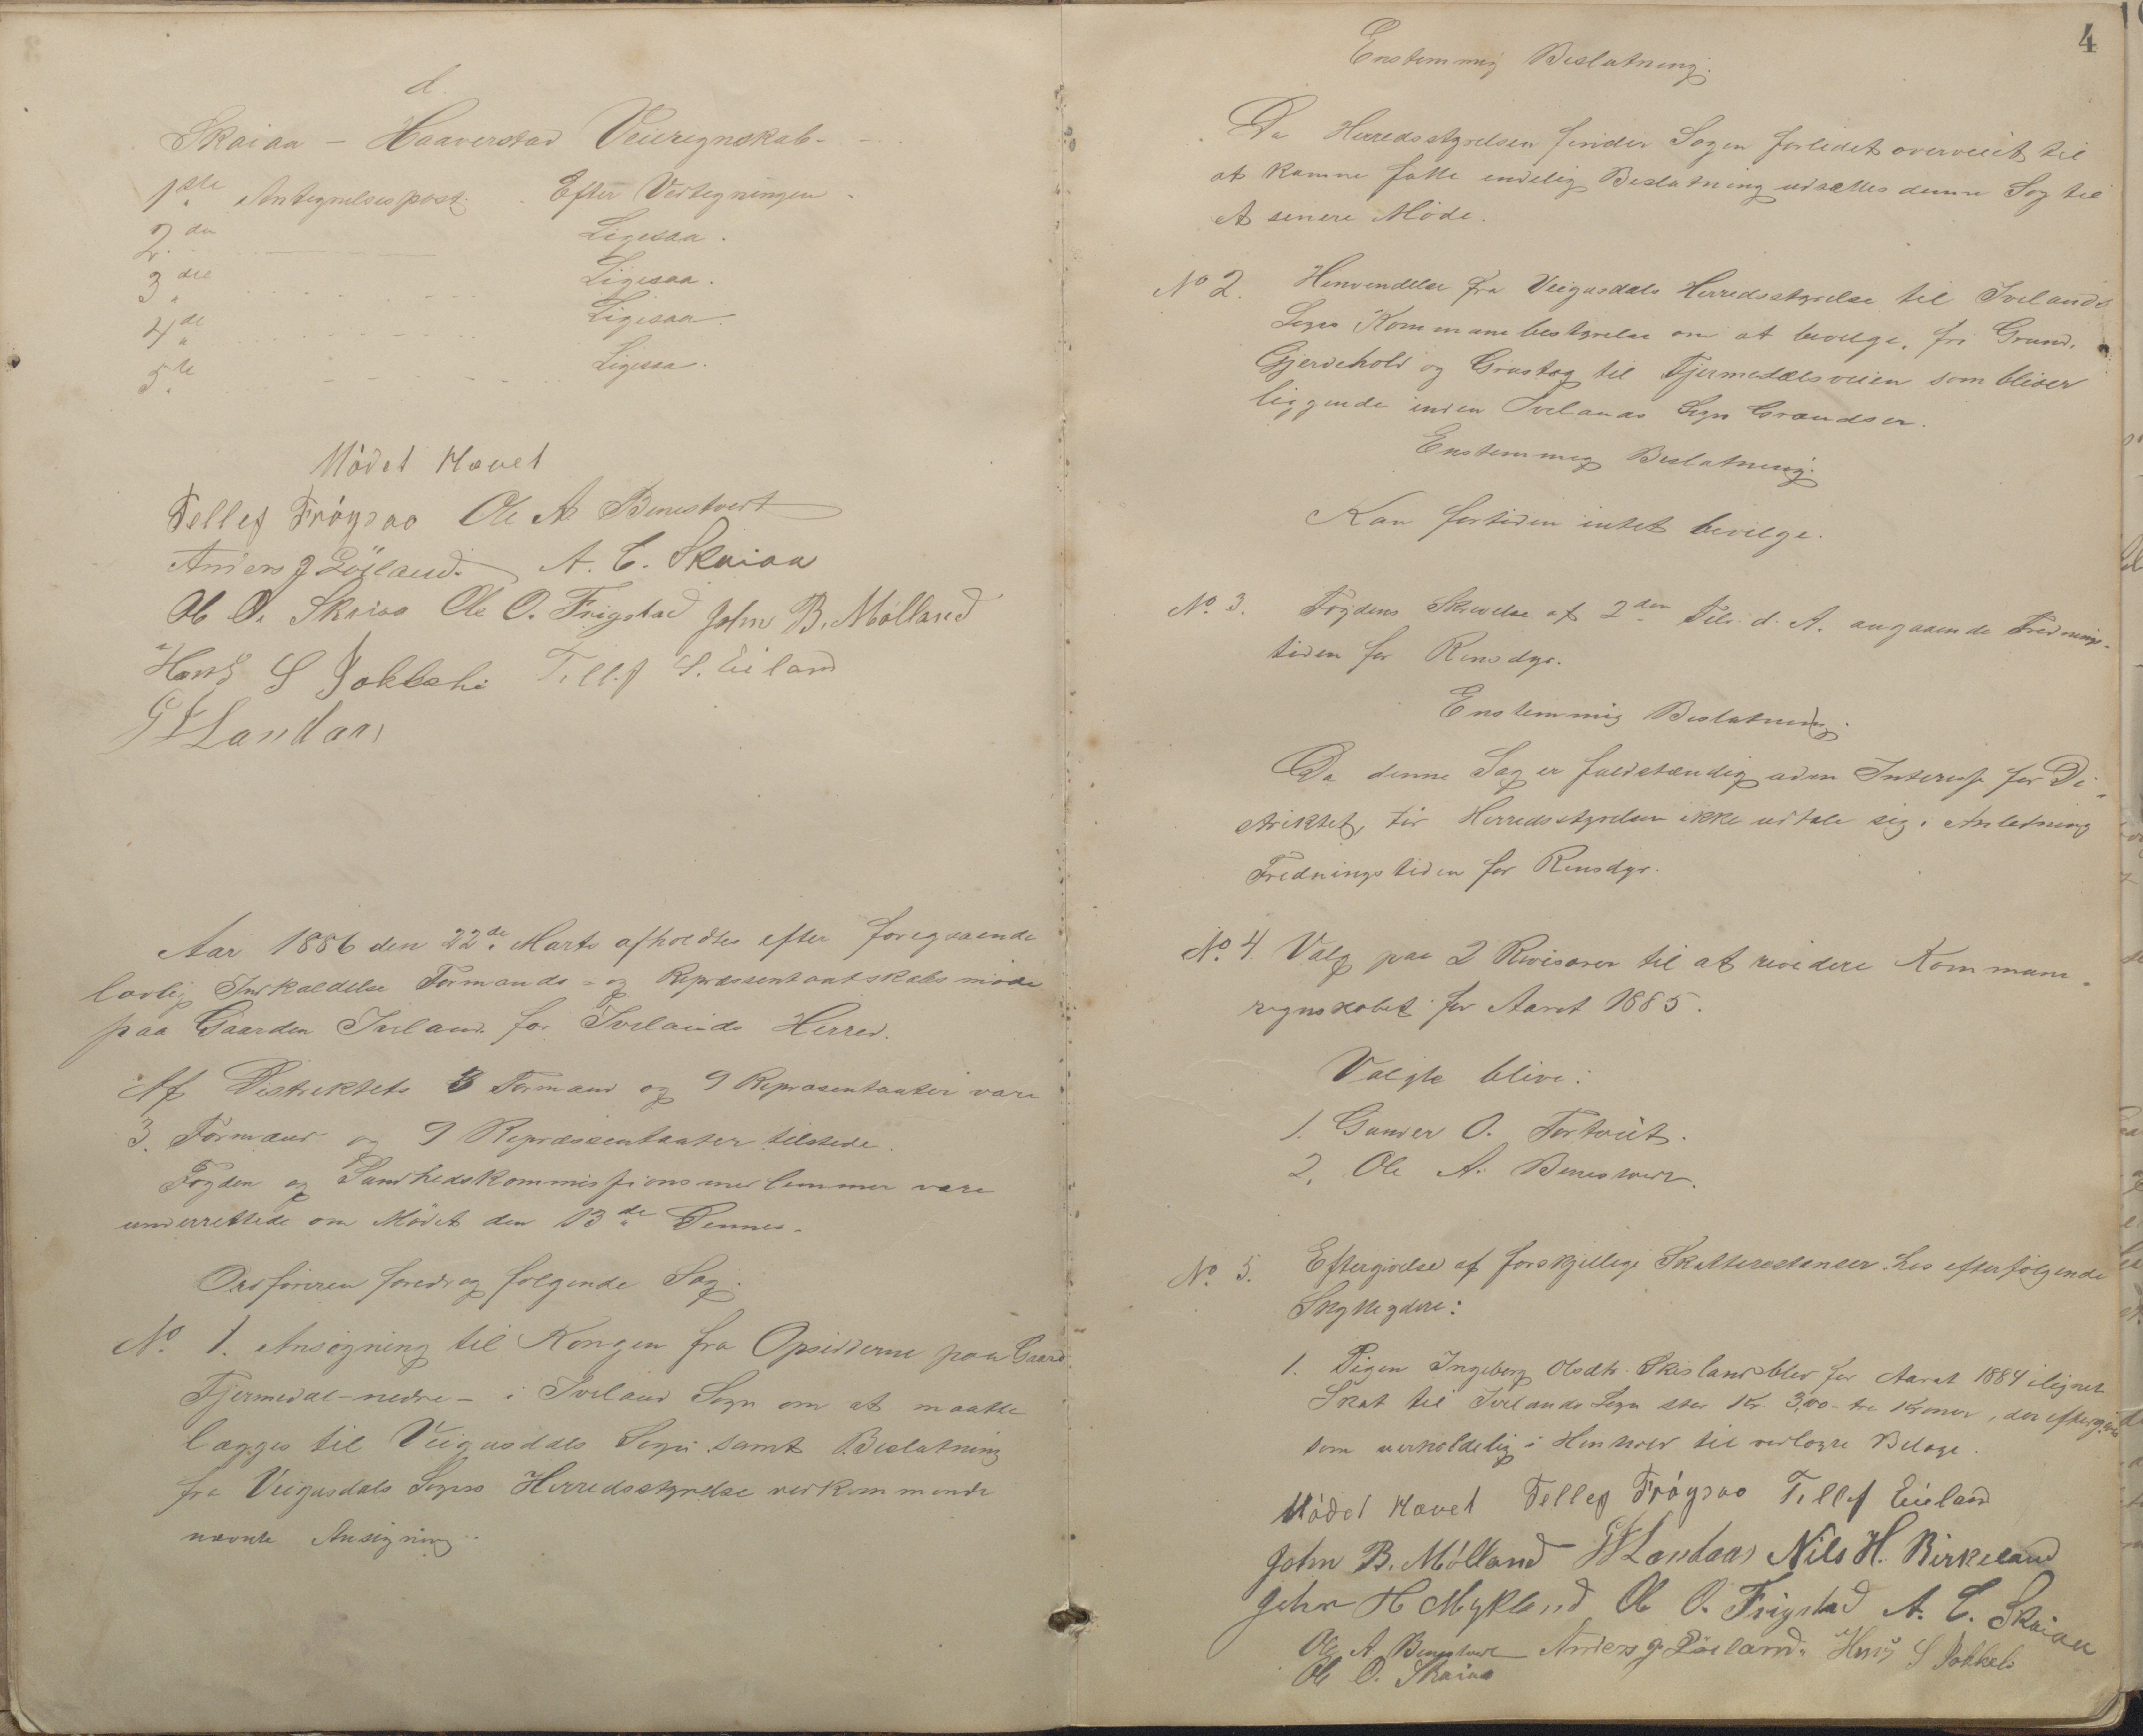 d.
Skaiaa - Haaverstad Veiregnskab.
1ste Antegnelsespost. Efter Vedtegningen.
2.den Ligesaa.
3die Ligesaa.
4de Ligesaa.
5te Ligesaa.
Mødet Hævet
Tellef Frøysaa Ole A. Benestvedt
Anders J Røiland. A. C. Skaiaa
Ole O. Skaiaa Ole O. Frigstad John B. Mølland
Hans S
Tellef S. Eiland
G Landaas
Aar 1886 den 22de Marts afholdtes efter foregaaende
lovlig Indkaldelse Formands- og Repræsentantskabsmøde
paa Gaarden Iveland for Ivelands Herred.
Af Distriktets 3 Formænd og 9 Repræsentanter vare
3. Formænd og 9 Repræssentanter tilstede.
Fogden og Sundhedskommissionsmedlemmer vare
underrettede om Mødet den 13de Dennes.
Ordføreren foredrog følgende Sag:
No. 1. Ansøgning til Kongen fra Opsidderne paa Gaard
Fjermedal-nedre- i Iveland Sogn om at maatte
lægges til Veigusdals Sogn samt Beslutning
fra Veigusdals Sogns Herredsstyrelse vedkommende
nævnte Ansøgning.
4
Enstemmig Beslutning.
Da Herredsstyrelsen finder Sagen forlidet overveiet til
at kunne fatte endelig Beslutning udsættes denne Sag til
et senere Møde.
No 2. Henvendelse fra Veigusdals Herredsstyrelse til Ivelands
Sogns Kommunebestyrelse om at bevilge, fri Grund,
Gjerdehold og Grustag til Fjermedalsveien som bliver
liggende inden Ivelands Sogns Grændser.
Enstemmig Beslutning.
Kan fortiden intet bevilge.
No. 3. Fogdens Skrivelse af 2den Feb. d. A. angaaende Frednings-
tiden for Rensdyr.
Enstemmig Beslutning.
Da denne Sag er fuldstændig uden Interesse for Di-
striktet, tør Herredsstyrelsen ikke udtale sig i Anledning
Fredningstiden for Rensdyr.
No. 4. Valg paa 2 Revisorer til at revidere Kommune-
regnskabet for Aaret 1885.
Valgte blive:
1. Gunder O. Tortveit.
2. Ole A. Benestvedt.
No. 5. Eftergivelse af forskjellige Skatterestanser hos efterfølgende
Skatteydere:
1. Pigen Ingeborg Olsdtr. Skisland blev for Aaret 1884 ilignet
Skat til Ivelands Sogn stor Kr. 3,00 - tre Kroner, der eftergives
som uerholdelig i Henhold til vedlagte Bilage.
Mødet Hævet Tellef Frøysaa Tellef Eieland
John B. Mølland G Landaas Nils H. Birkeland
John H Mykland Ole O. Frigstad A. C. Skaiaa
Ole A Benestvedt Anders J. Røiland. Hans S
Ole O. Skaiaa